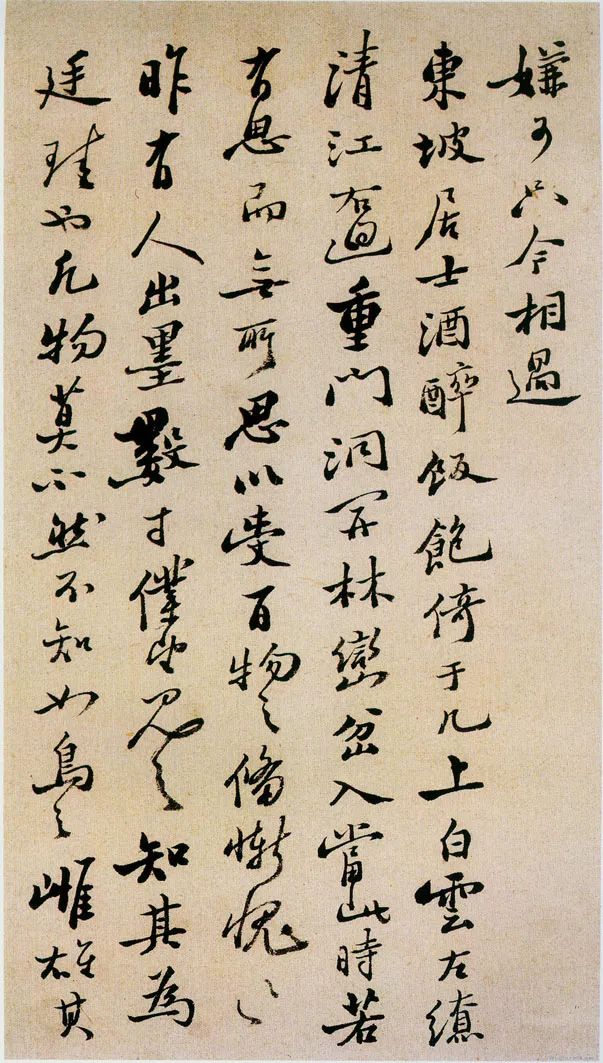 嫌可只今相過
東坡居士酒醉飯飽倚于几上白雲左繞
清江右迴重門洞開林巒岔入當此時若
有思而無所思以受百物之備慚愧〻
昨有人出墨數寸僕望見之知其為
廷珪也凡物莫不然不知如烏之雌雄其